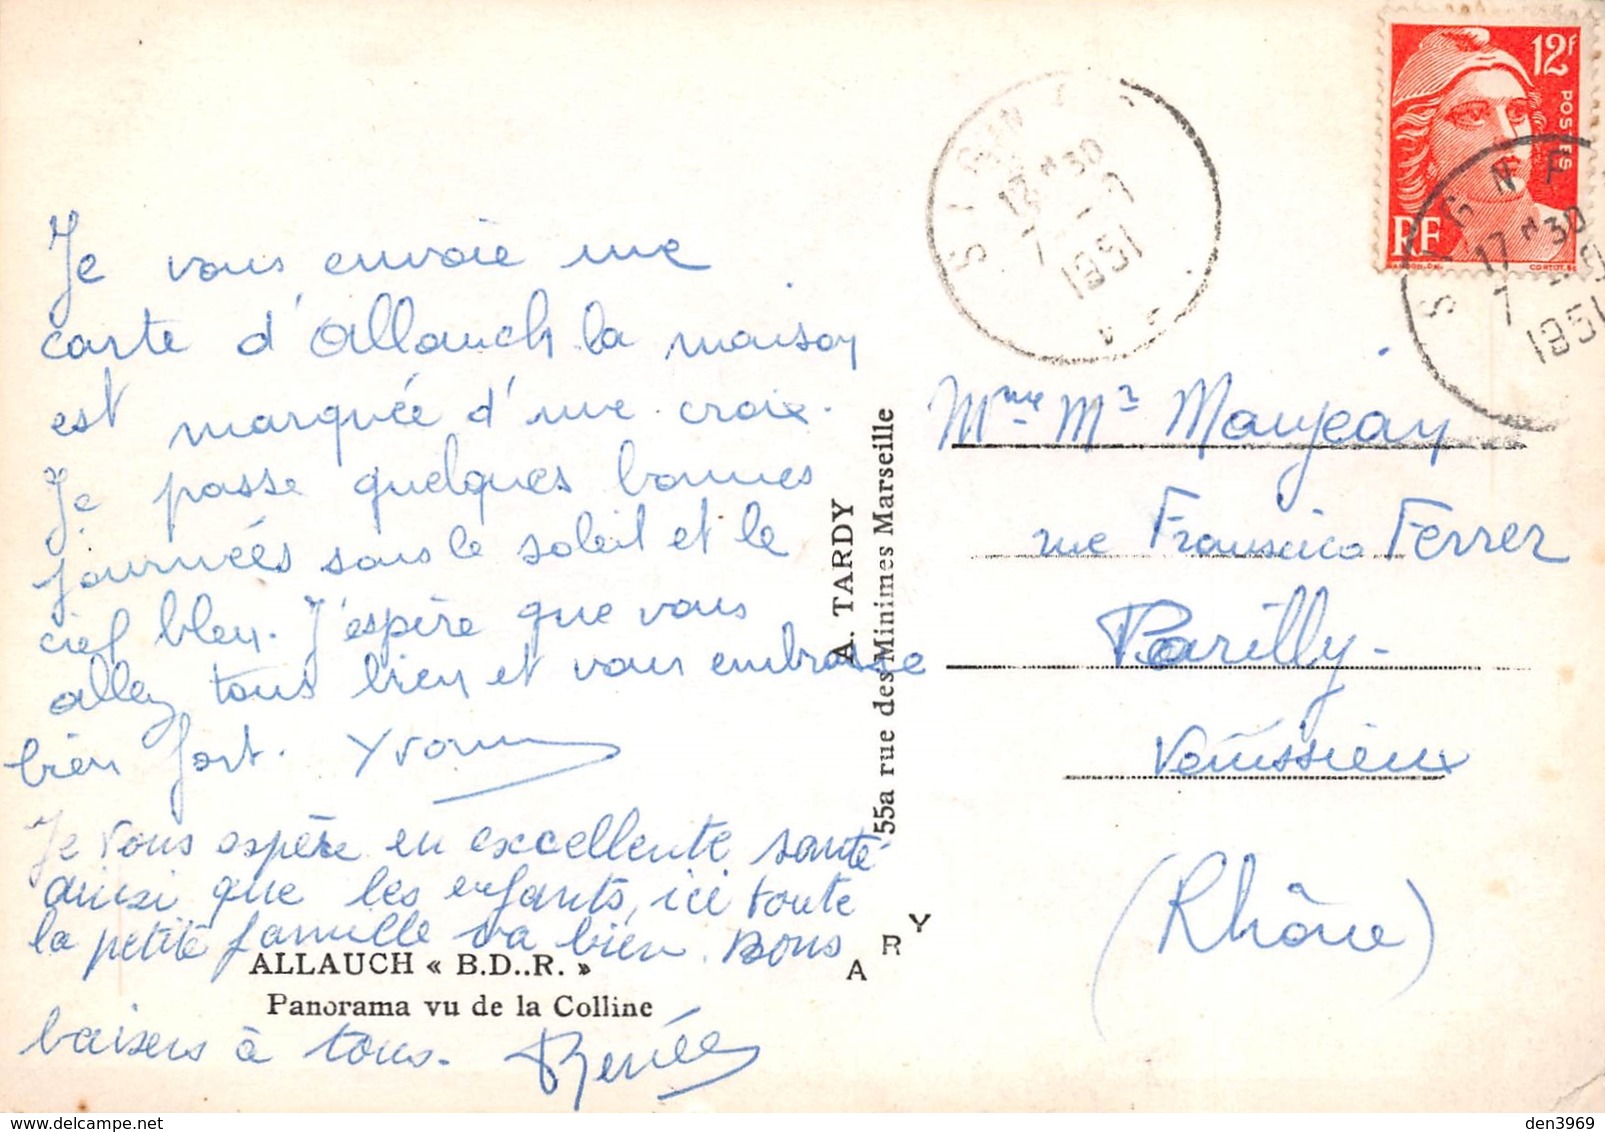 Je vous envoie une
carte d'Allauch la maison
est marquée d'une croix.
Je passe quelques bonnes
journées sous le soleil et le
ciel bleu. J'espère que vous
allez tous bien et vous embrasse
bien fort. Yvonne
Je vous espère en excellente santé
ainsi que les enfants, ici toute
la petite famille va bien. Bons
baisers à tous. Renée
ALLAUCH « B.D..R. »
Panorama vu de la Colline
A. TARDY
55a rue des Minimes Marseille
ARY
12f
POSTES
RF
GANDON.DEL
CORTOT.SC
17 H30
7
1951
17 H30
7
1951
Mme Mr Maujean
rue Francisco Ferrer
Parilly-
Venissieux
(Rhône)
den3969